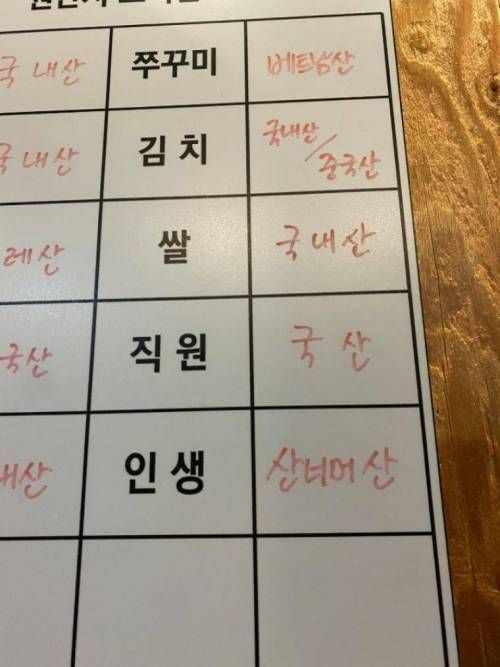 국내산 쭈꾸미 베트남산
국내산 김치 국내산/
중국산
레산 쌀 국내산
국산 직원 국산
내산 인생 산너머 산